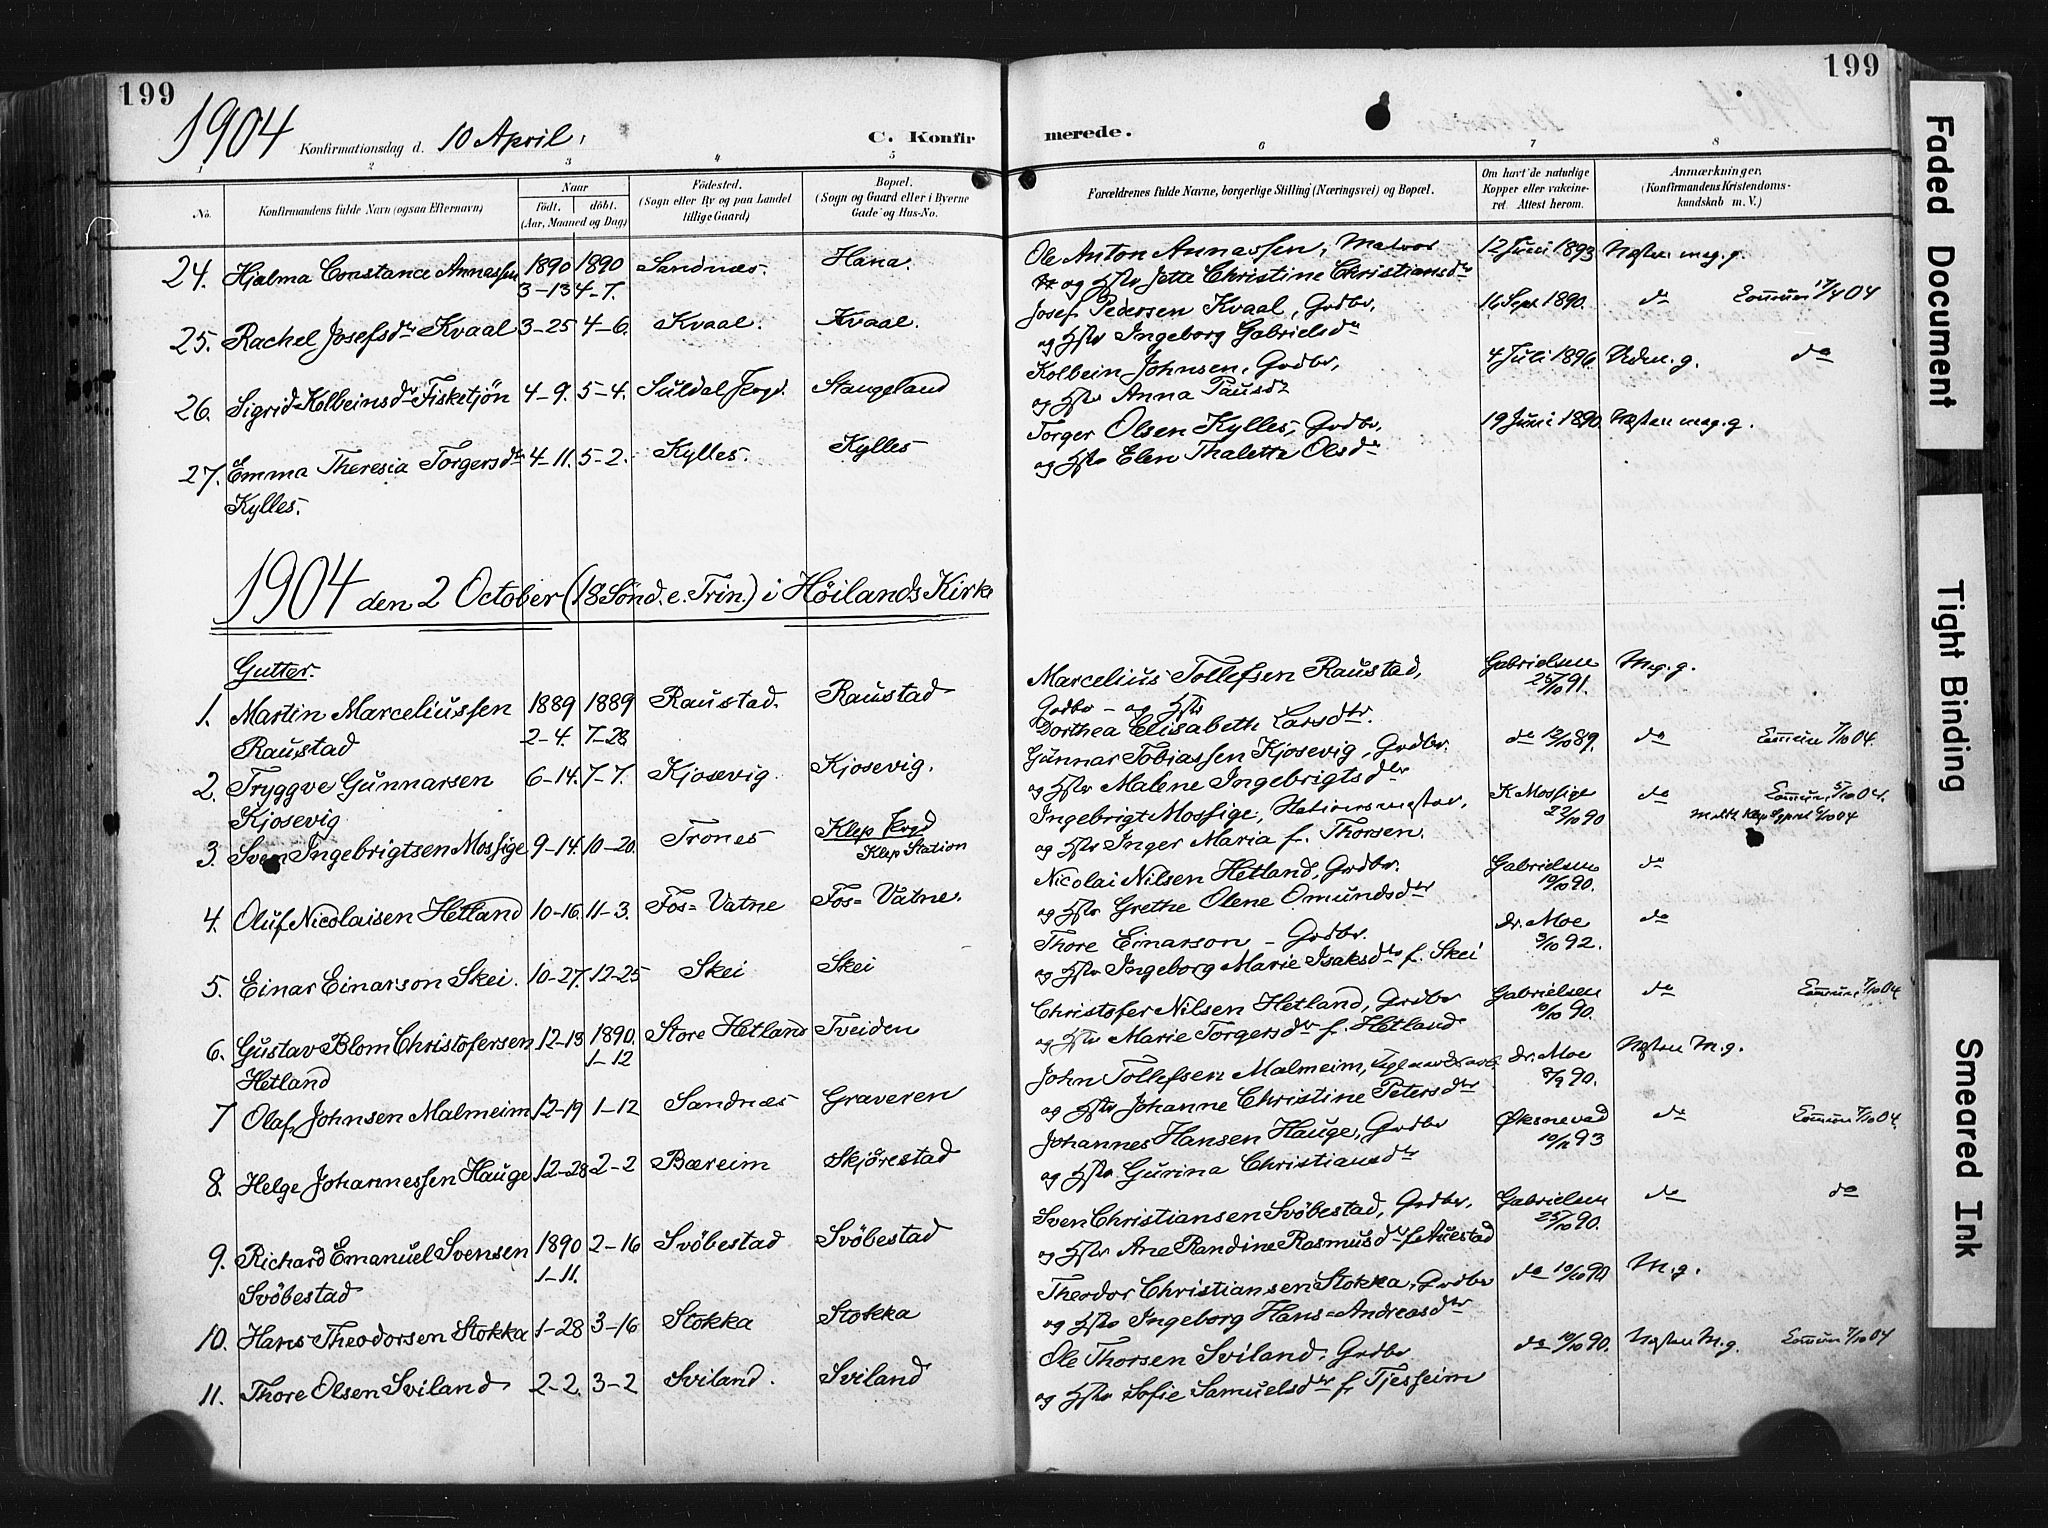 199
1904 Konfirmationsdag d. 10 April.
C. Konfir
1 2 3 4 5
No.
Konfirmandens fulde Navn (ogsaa Efternavn)
Naar
födt. döbt.
(Aar, Maaned og Dag)
Födested.
(Sogn eller By og paa Landet
tillige Gaard)
Bopæl.
(Sogn og Gaard eller i Byerne
Gade og Hus-No.
24. Hjalma Constance Annassen 1890 1890 Sandnæs. Hana.
3-13 4-7.
25. Rachel Josefsdr Kvaal 3-25 4-6. Kvaal. Kvaal.
26. Sigrid Kolbeinsdr Fisketjön 4-9. 5-4. Suldal Prgd. Stangeland
27. Emma Theresia Torgersdr 4-11. 5-2. Kylles. Kylles
Kylles.
1904 den 2 October (18 Sönd. e. Trin.) i Höilands Kirke
Gutter.
1. Martin Marceliussen 1889 1889 Raustad. Raustad
Raustad 2-4. 7-28
2. Tryggve Gunnarsen 6-14. 7-7. Kjosevig. Kjosevig.
Kjosevig
3. Sven Ingebrigtsen Mossige 9-14. 10-20. Trones Klep Prgd
Klep Station
4. Oluf Nicolaisen Hetland 10-16. 11-3. Fos-Vatne Fos-Vatne.
5. Einar Einarson Skei. 10-27. 12-25 Skei Skei
6. Gustav Blom Christofersen 12-13 1890. Store Hetland Tveiden
Hetland 1-12
7 Olaf Johnsen Malmeim 12-19 1-12 Sandnæs Graveren
8. Helge Johannessen Hauge 12-28 2-2 Bæreim Skjörestad
9. Richard Emanuel Svensen 1890 2-16 Svöbestad Svöbestad
Svöbestad 1-11.
10. Hans Theodorsen Stokka 1-28 3-16 Stokka Stokka
11. Thore Olsen Sviland 2-2. 3-2 Sviland. Sviland
199
merede.
6 7 8
Forældrenes fulde Navne, borgerlige Stilling (Næringsvei) og Bopæl.
Om havt de naturlige
Kopper eller vakcine-
ret. Attest herom.
Anmærkninger,
(Konfirmandens Kristendoms-
kundskab m. V.)
Ole Anton Annassen, 12 Juni 1893 Næsten meg. g.
og Hstr Jette Christine Christiansdr
Josef Pedersen Kvaal, Grdbr, 16 Sept 1890. do 17/4 04
og Hstr Ingeborg Gabrielsdr
Kolbein Johnsen, Grdbr, 4 Juli 1896 Udm. g. do
og Hstr Anna Pausdr
Torger Olsen Kylles, Grdbr, 19 Juni 1890 Næsten meg. g.
og Hstr Elen Thalette Olsdr
Marcelius Tollefsen Raustad, Gabrielsen M.g. g.
Grdbr - og Hstr 25/10 91.
Dorthea Elisabeth Larsdtr.
Gunnar Tobiassen Kjosevig, Grdbr. do 12/10 89. do 7/10 04.
og Hstr Malene Ingebrigtsdtr
Ingebrigt Mossige, K Mossige do 5/10 04.
og Hstr Inger Maria f. Thorsen. 22/10 90
Nicolai Nilsen Hetland, Grdbr. Gabrielsen do
og Hstr Grethe Olene Omundsdtr 10/10 90.
Thore Einarson - Grdbr. dr. Moe do
og Hstr Ingeborg Marie Isaksdtr f. Skei 3/10 92.
Christofer Nilsen Hetland, Grdbr Gabrielsen do 7/10 04
og Hstr Marie Torgersdtr f. Hetland 10/10 90.
John Tollefsen Malmeim, dr. Moe Næsten M.g.
og Hstr Johanne Christine Petersdtr 8/9 90.
Johannes Hansen Hauge, Grdbr Øksnevad do 7/10 04
og Hstr Gurina Christiansdtr
Sven Christiansen Svöbestad, Grdbr, Gabrielsen do do
og Hstr Ane Randine Rasmusdtr f. Auestad 25/10 90.
Theodor Christiansen Stokka, Grdbr do 10/10 90 M.g.
og Hstr Ingeborg Hans-Andreasdtr
Ole Thorsen Sviland, Grdbr do 10/10 90. Næsten M.g. 7/10 04
og Hstr Sofie Samuelsdtr f. Tjessheim
Faded Document
Tight Binding
Smeared Ink